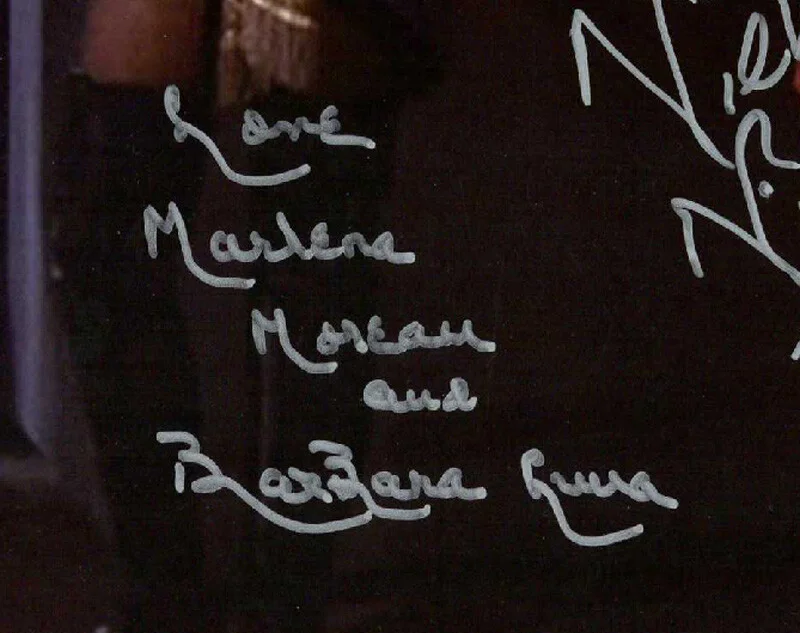 Love
Marlena
Moreau
and
BarBara Luna